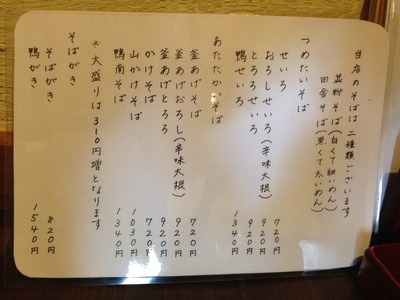 当店のそばは二種類ございます
並粉そば(白くて細いめん)
田舎そば(黒くて太いめん)
つめたいそば
せいろ 720円
おろしせいろ(辛味大根) 920円
とろろせいろ 920円
鴨せいろ 1340円
あたたかいそば
釜あげそば 720円
釜あげおろし(辛味大根) 920円
釜あげとろろ 920円
かけそば 720円
山かけそば 1030円
鴨南そば 1340円
※大盛りは310円増となります
そばがき
そばがき 820円
鴨がき 1540円